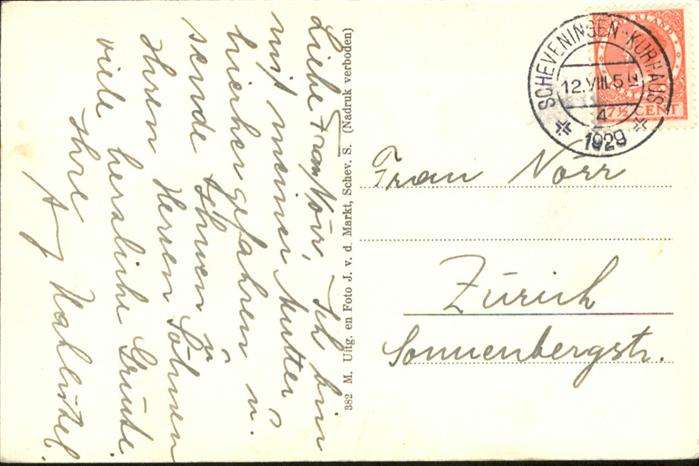 Liebe Frau Nörr, Ich bin
mit meiner Mutter
hierher gefahren u.
sende Ihnen u.
Ihren Herren Söhnen
viele herzliche Grüsse.
Ihre
382 M. Uitg. en Foto J. v. d. Markt, Schev. S. (Nadruk verboden)
SCHEVENINGEN-KURHAUS
12.VIII.5
4
1929
7½ CENT
Frau Nörr
Zürich
Sonnenbergstr.